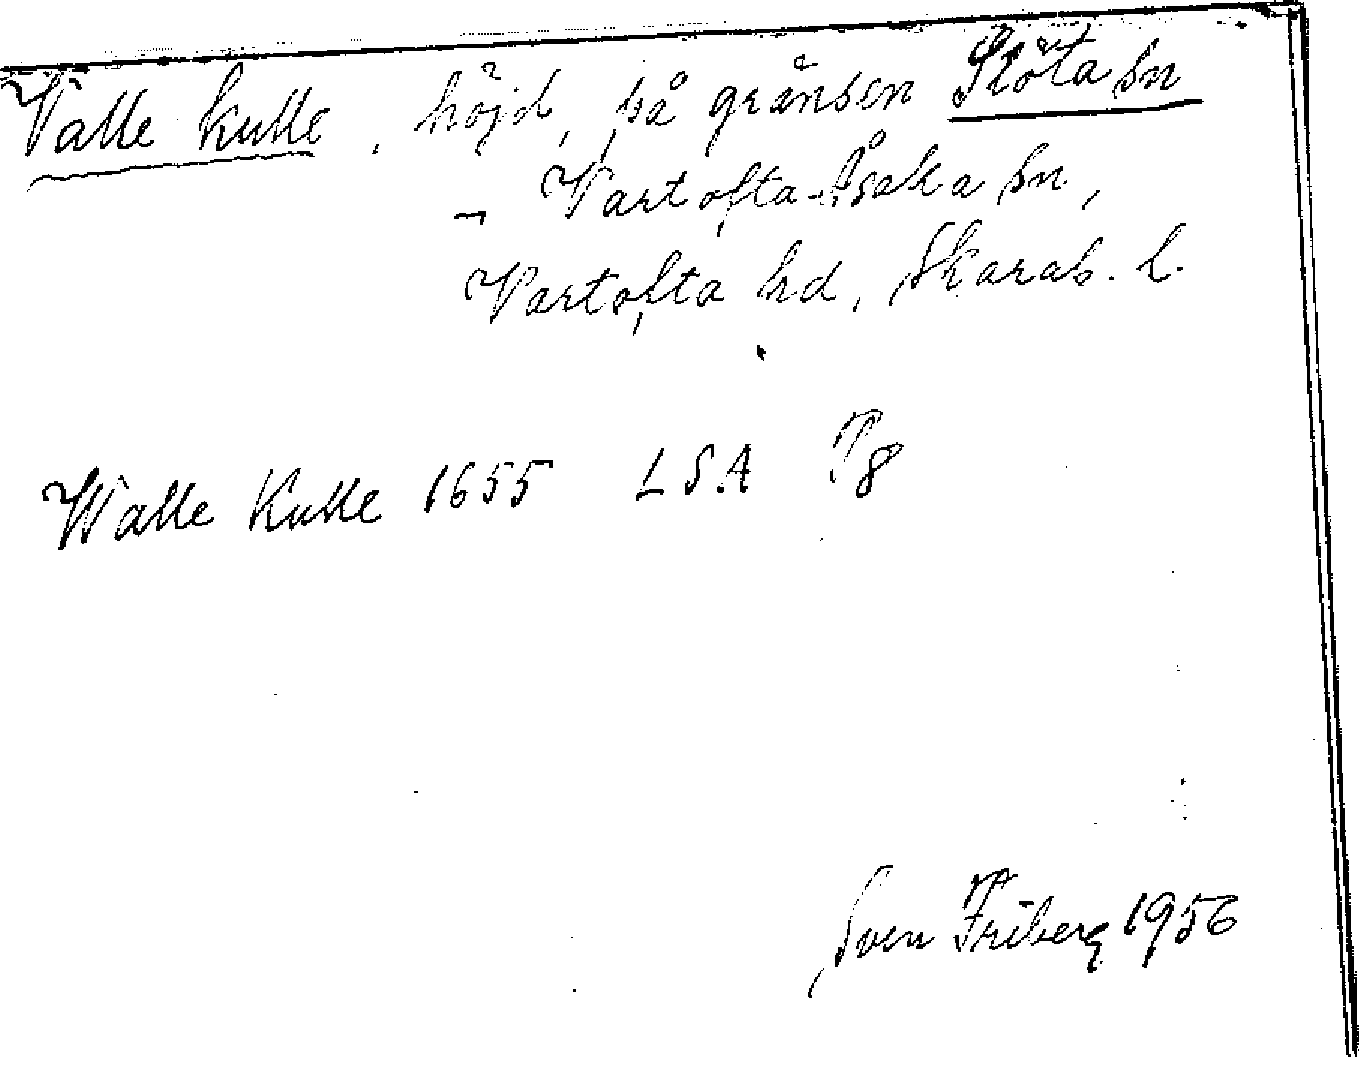 Valle kulle, höjd, på gränsen Slöta sn
– Vartofta-Åsaka sn,
Vartofta hd, Skarab. l.
Walle Kulle 1655 LSA P8
Sven Friberg 1956